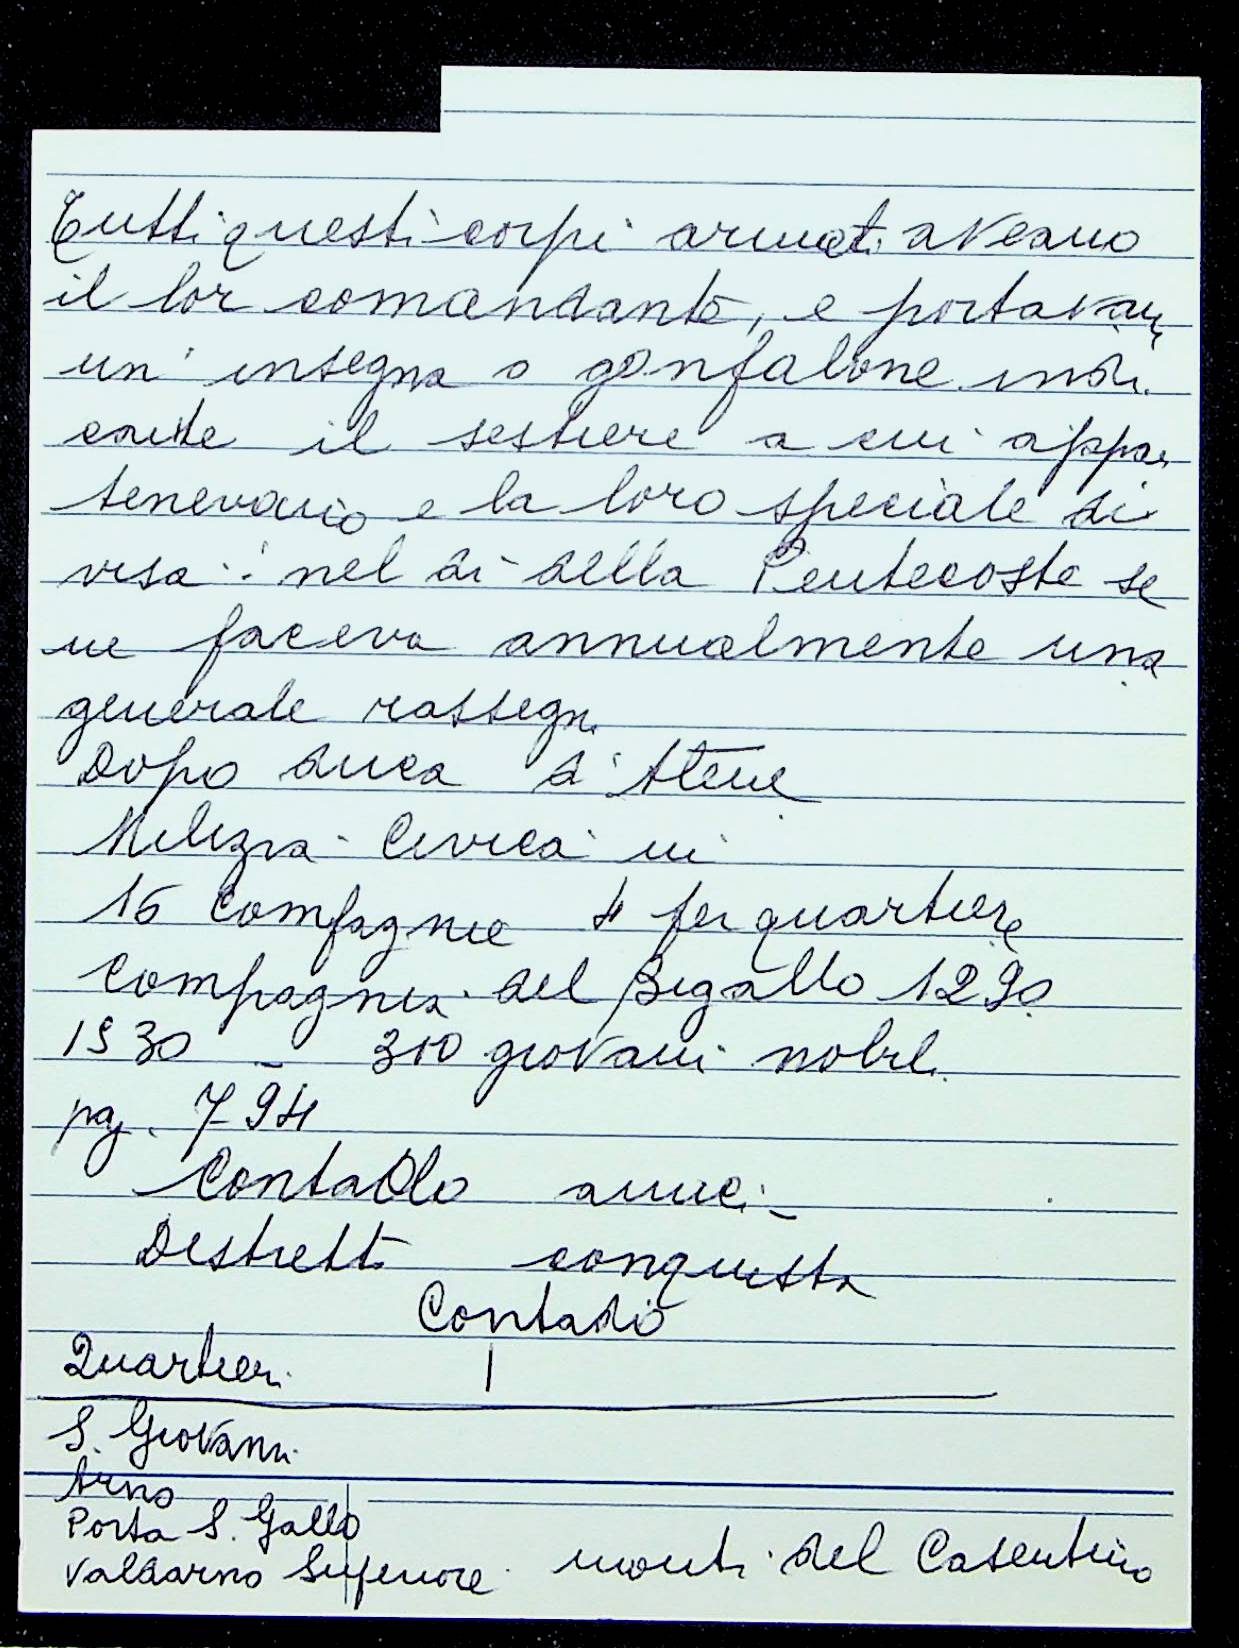 Tutti questi corpi armati aveano
il lor comandante, e portavan
un' insegna o gonfalone indi
cante il sestiere a cui appar
tenevano e la loro speciale di
visa: nel dì della Pentecoste se
ne faceva annualmente una
generale rassegn.
Dopo duca d'Atene
Milizia Civica in
16 Compagnie 4 per quartiere
Compagnia del Bigallo 1290
1530 - 300 giovani nobil.
pg. 794
Contado
Distrett. conquista
Contado
Quartier.
S. Giovanni
Arno
Porta S. Gallo
Valdarno Superiore monti del Casentino